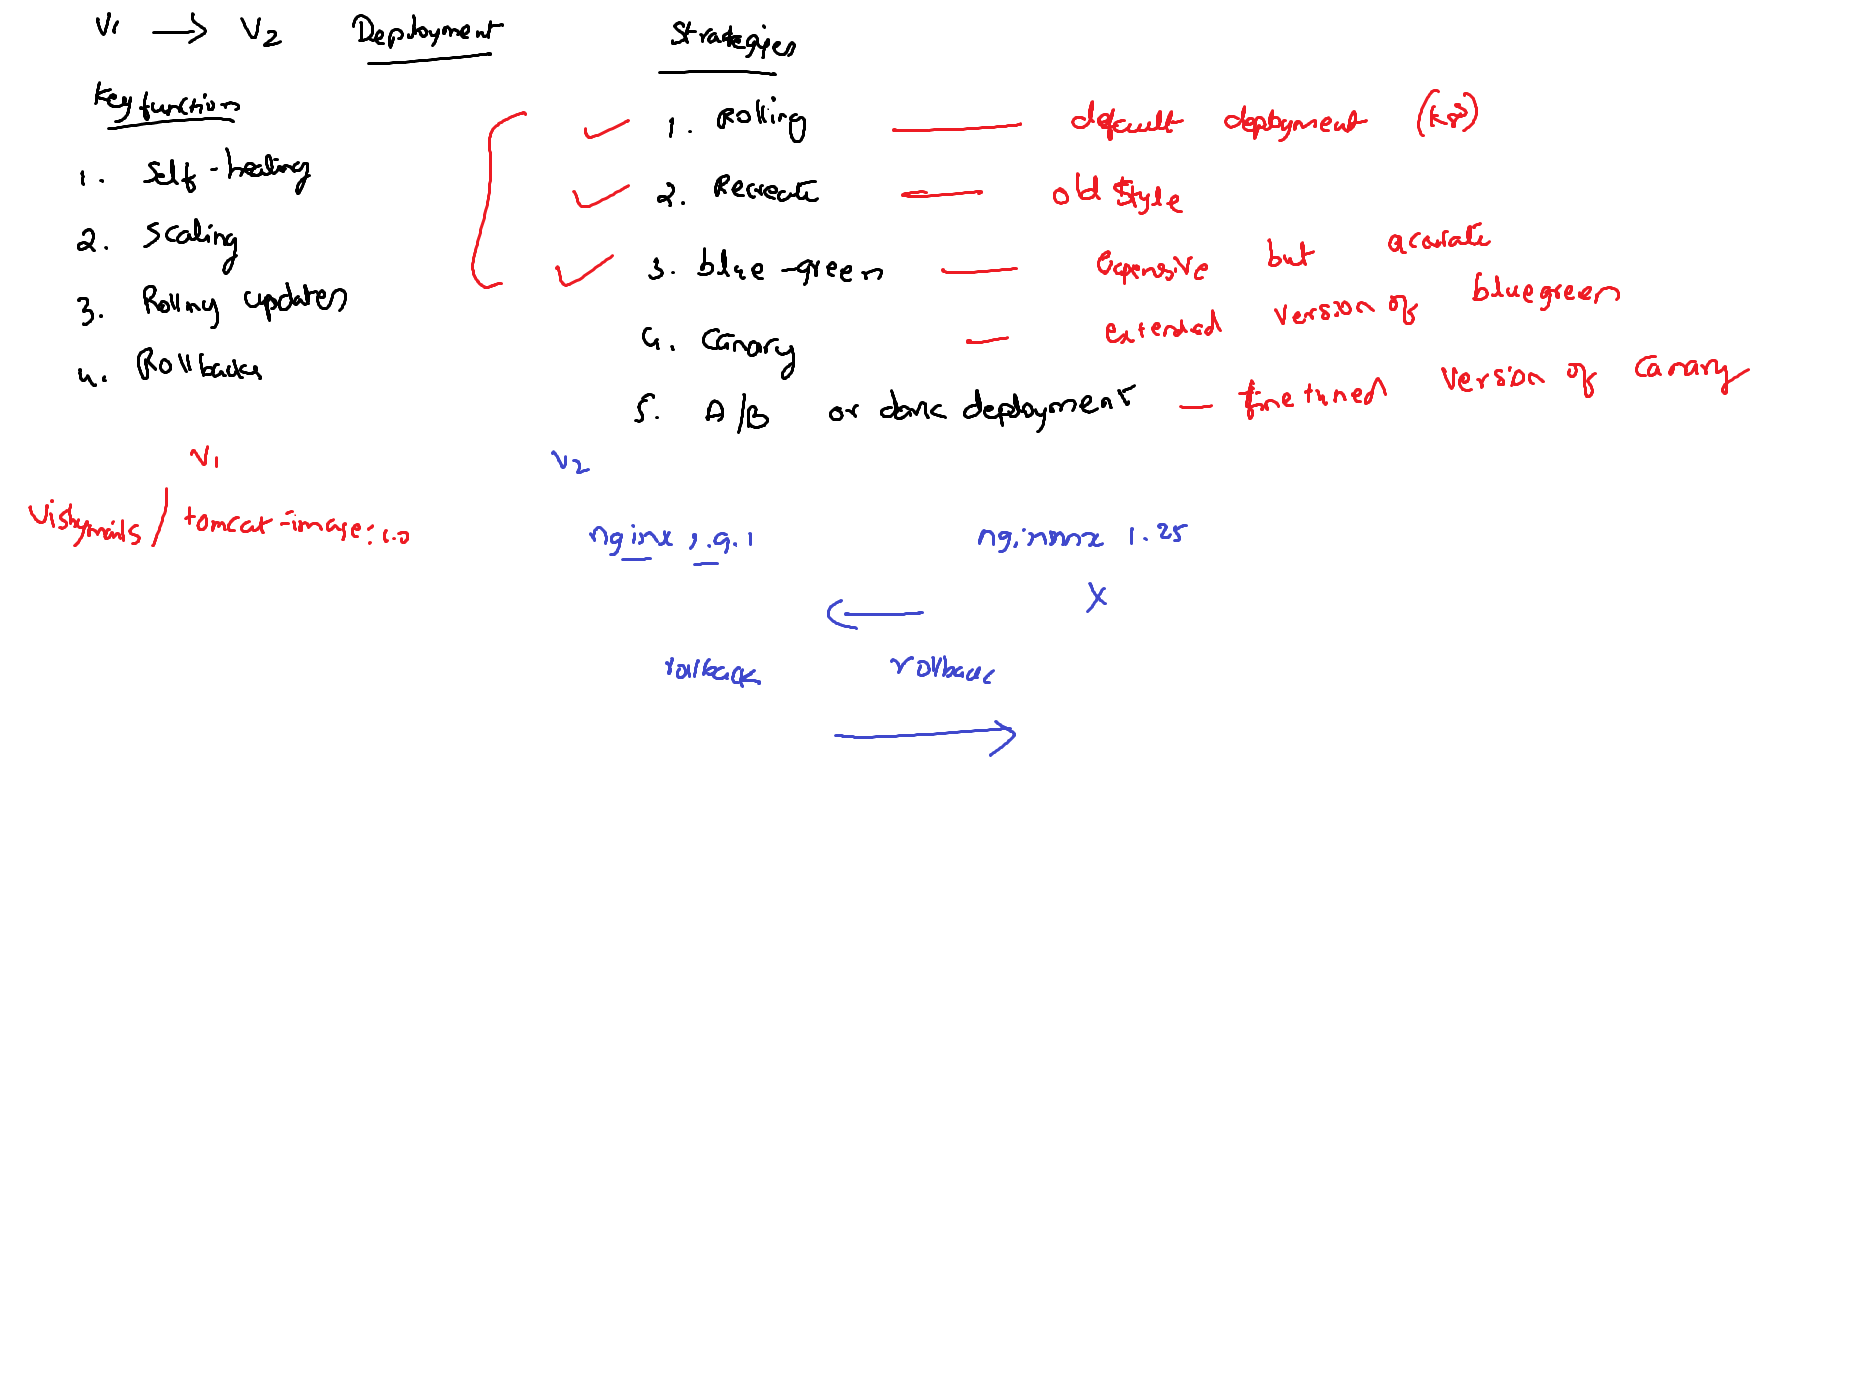 V1 → V2 Deployment Strategies
Key function
1. Self-healing
2. Scaling
3. Rolling updates
4. Rollbacks
1. Rolling — default deployment (k8)
2. Recreate — old style
3. blue-green — expensive but acurate
4. Canary — extended version of bluegreen
5. A/B or dark deployment — fine tuned version of Canary
V1
V2
/ tomcat-image: 1.0
nginx 1.9.1
1.25
X
rollback rollback